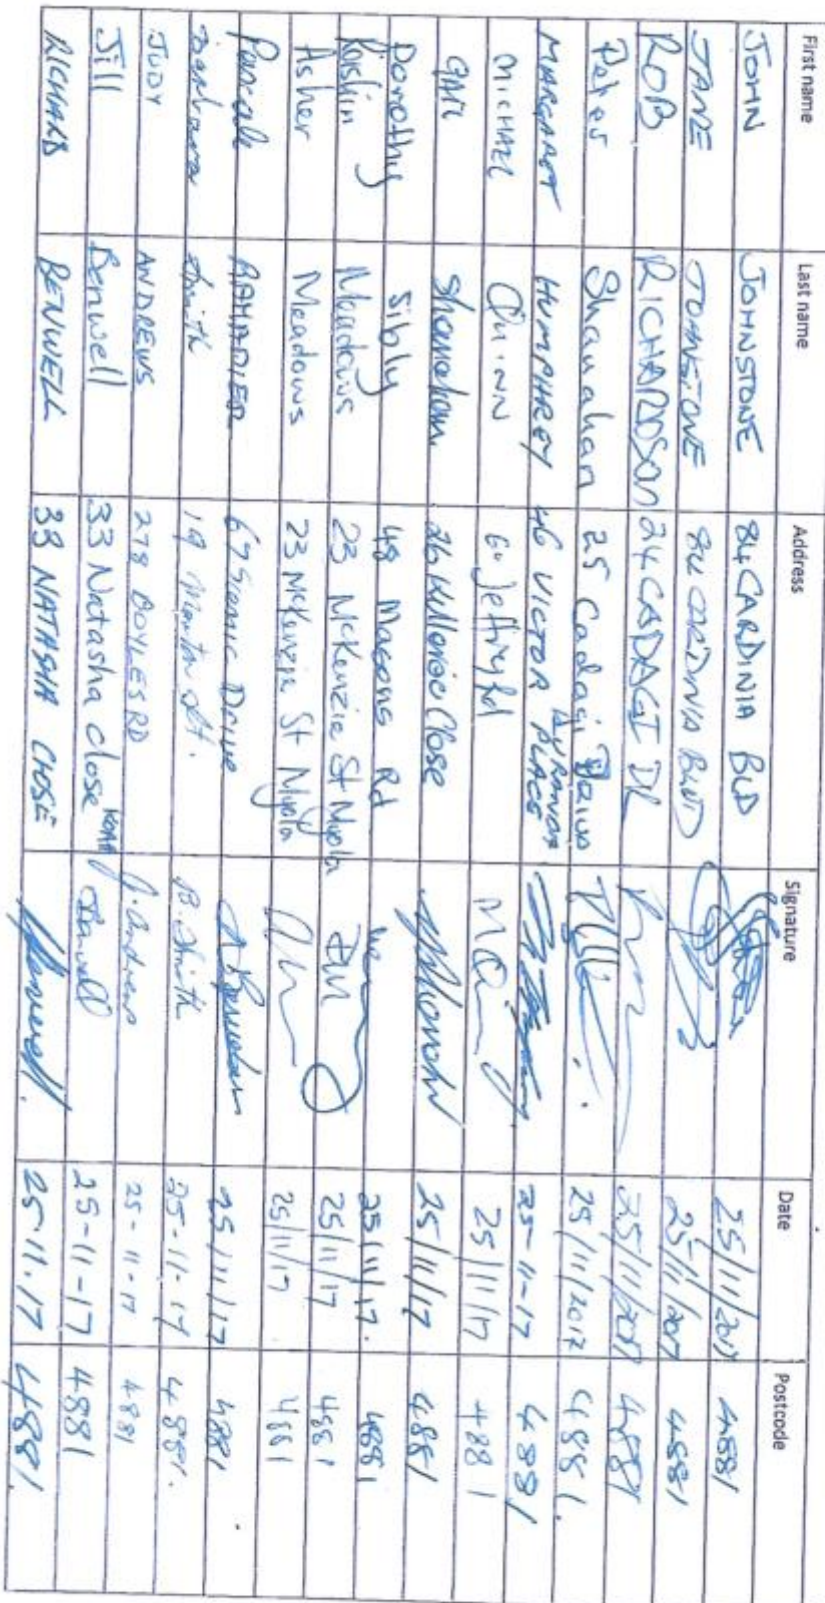 First name Last name Address Signature Date Postcode
JOHN JOHNSTONE 84 CARDINIA BLD 25/11/2017 4881
JANE JOHNSTONE 84 CARDINIA BLVD 25/11/2017 4881
ROB RICHARDSON 24 CADAGI DR 25/11/2017 4881
Peter Shanahan 25 Cadagi Drive 25/11/2017 4881.
MARGARET HUMPHREY 46 VICTOR PLACE KURANDA 25-11-17 4881
MICHAEL QUINN Jeffrey Rd M Quinn 25/11/17 4881
GAIL Shanahan 26 Close 25/11/17 4881
Dorothy Sibly 48 Masons Rd 25/11/17. 4881
Roisin Meadows 23 McKenzie St Myola 25/11/17 4881
Asher Meadows 23 McKenzie St Myola 25/11/17 4881
Pascale RAMADIER 67 Scenic Drive 25/11/17 4881
Barbara Smith 19 St. B. Smith 25-11-17 4881.
JUDY ANDREWS 278 BOYLES RD J. Andrews 25-11-17 4881
Jill Benwell 33 Natasha close Benwell 25-11-17 4881
RICHARD BENWELL 33 NATASHA CLOSE 25.11.17 4881